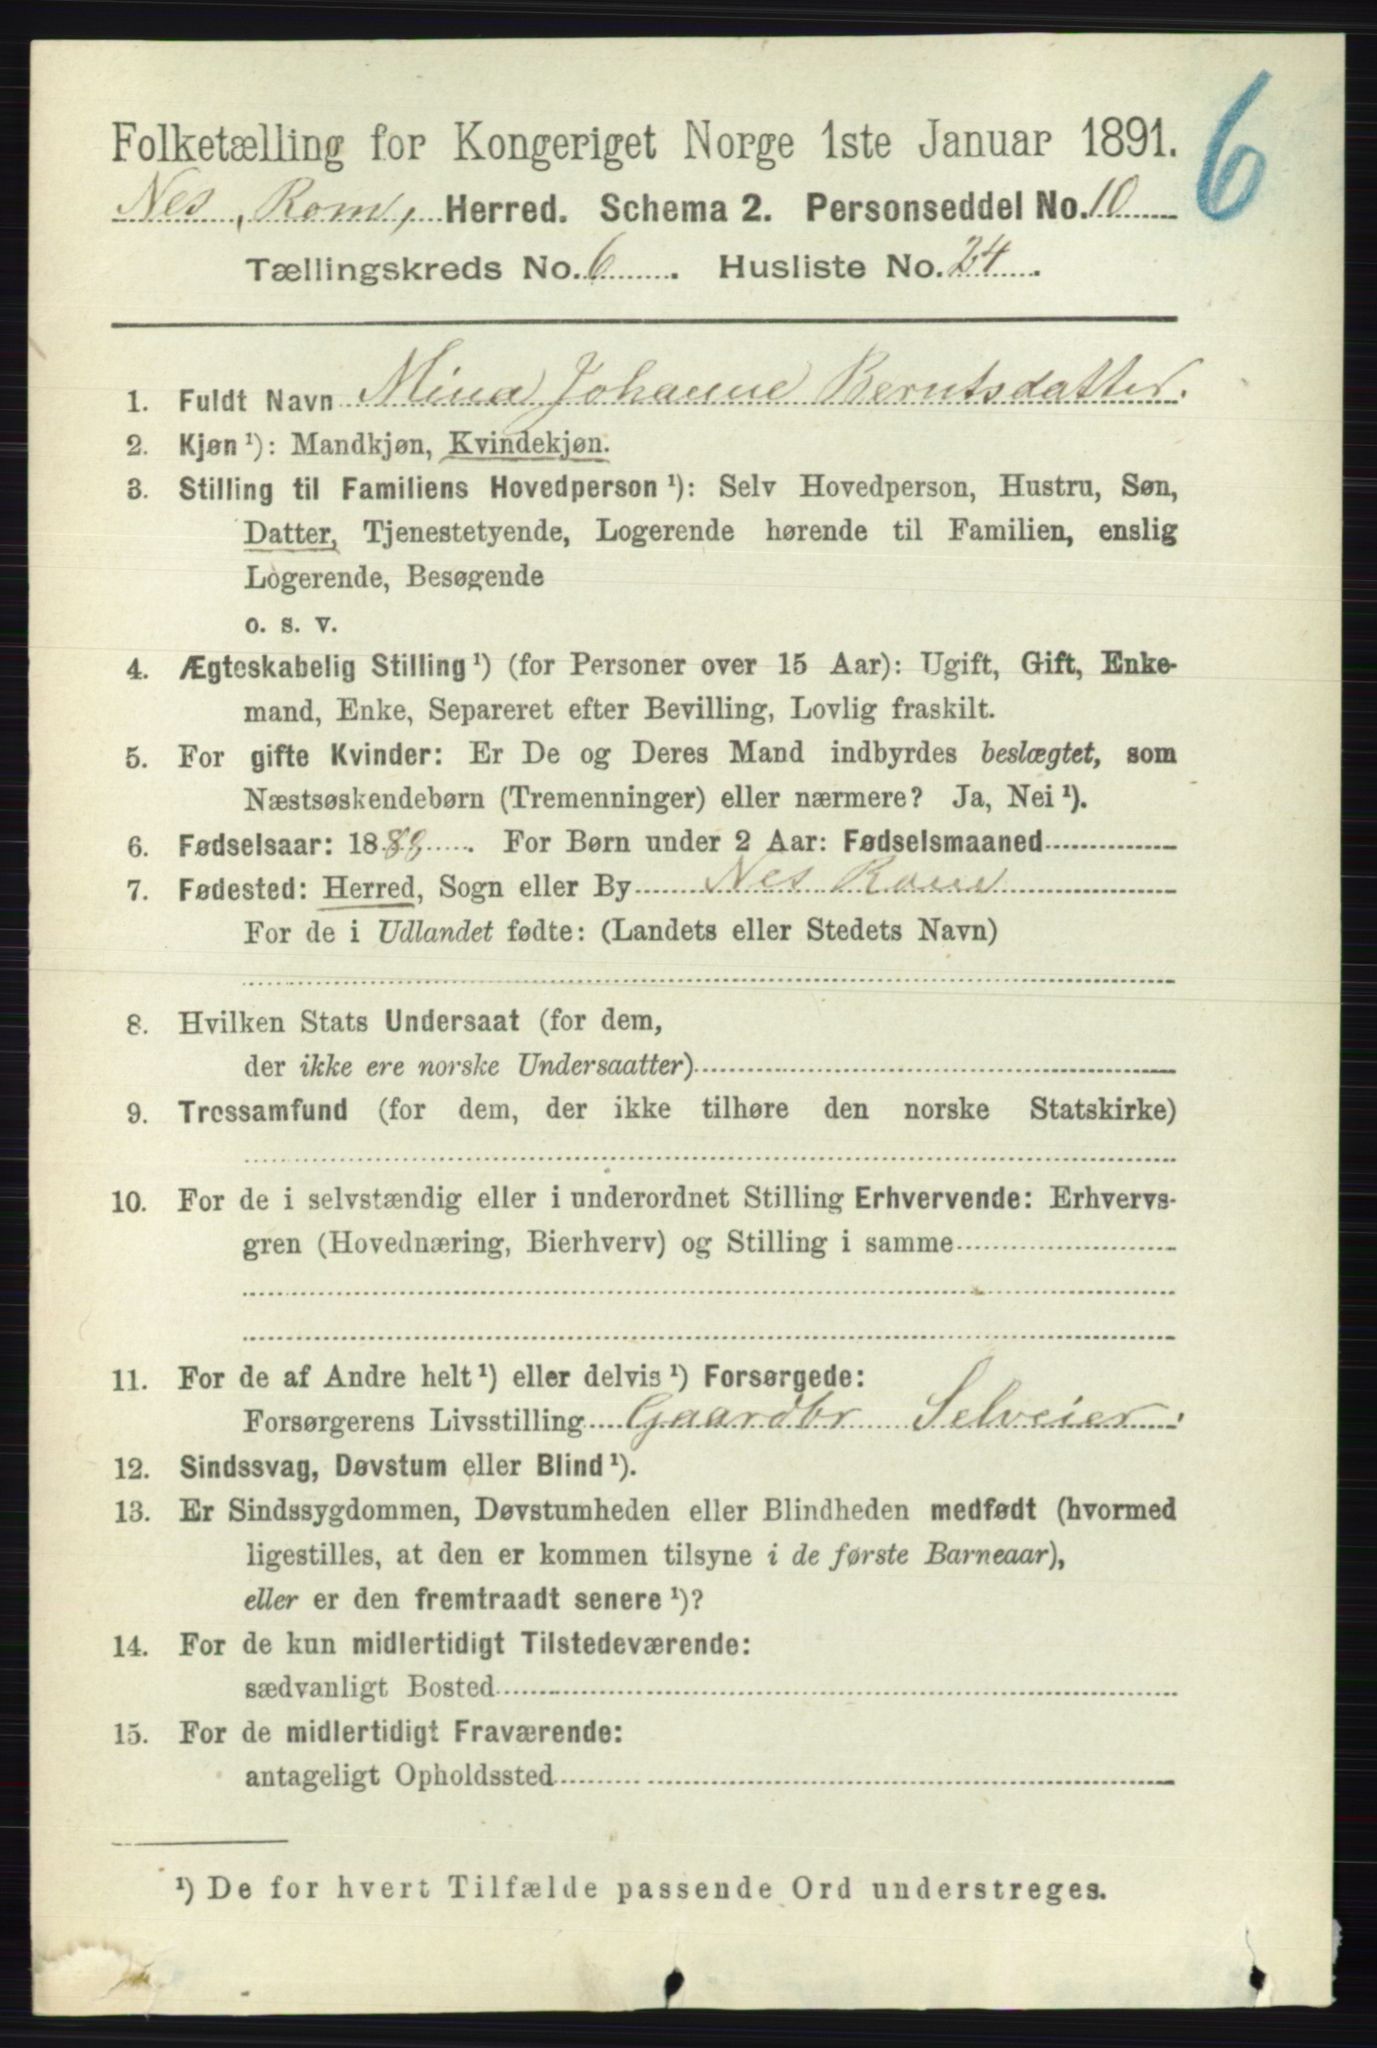 6
Folketælling for Kongeriget Norge 1ste Januar 1891.
Nes, Rom, Herred. Schema 2. Personseddel No. 10
Tællingskreds No. 6. Husliste No. 24.
1. Fuldt Navn Mina Johanne Berntsdatter.
2. Kjøn ¹): Mandkjøn, Kvindekjøn.
3. Stilling til Familiens Hovedperson ¹): Selv Hovedperson, Hustru, Søn,
Datter, Tjenestetyende, Logerende hørende til Familien, enslig
Logerende, Besøgende
o. s. v.
4. Ægteskabelig Stilling ¹) (for Personer over 15 Aar): Ugift, Gift, Enke-
mand, Enke, Separeret efter Bevilling, Lovlig fraskilt.
5. For gifte Kvinder: Er De og Deres Mand indbyrdes beslægtet, som
Næstsøskendebørn (Tremenninger) eller nærmere? Ja, Nei ¹).
6. Fødselsaar: 1888. For Børn under 2 Aar: Fødselsmaaned
7. Fødested: Herred, Sogn eller By Nes Rom
For de i Udlandet fødte: (Landets eller Stedets Navn)
8. Hvilken Stats Undersaat (for dem,
der ikke ere norske Undersaatter)
9. Trossamfund (for dem, der ikke tilhøre den norske Statskirke)
10. For de i selvstændig eller i underordnet Stilling Erhvervende: Erhvervs-
gren (Hovednæring, Bierhverv) og Stilling i samme
11. For de af Andre helt ¹) eller delvis ¹) Forsørgede:
Forsørgerens Livsstilling Gaardbr Selveier.
12. Sindssvag, Døvstum eller Blind ¹).
13. Er Sindssygdommen, Døvstumheden eller Blindheden medfødt (hvormed
ligestilles, at den er kommen tilsyne i de første Barneaar),
eller er den fremtraadt senere ¹)?
14. For de kun midlertidigt Tilstedeværende:
sædvanligt Bosted
15. For de midlertidigt Fraværende:
antageligt Opholdssted
¹) De for hvert Tilfælde passende Ord understreges.